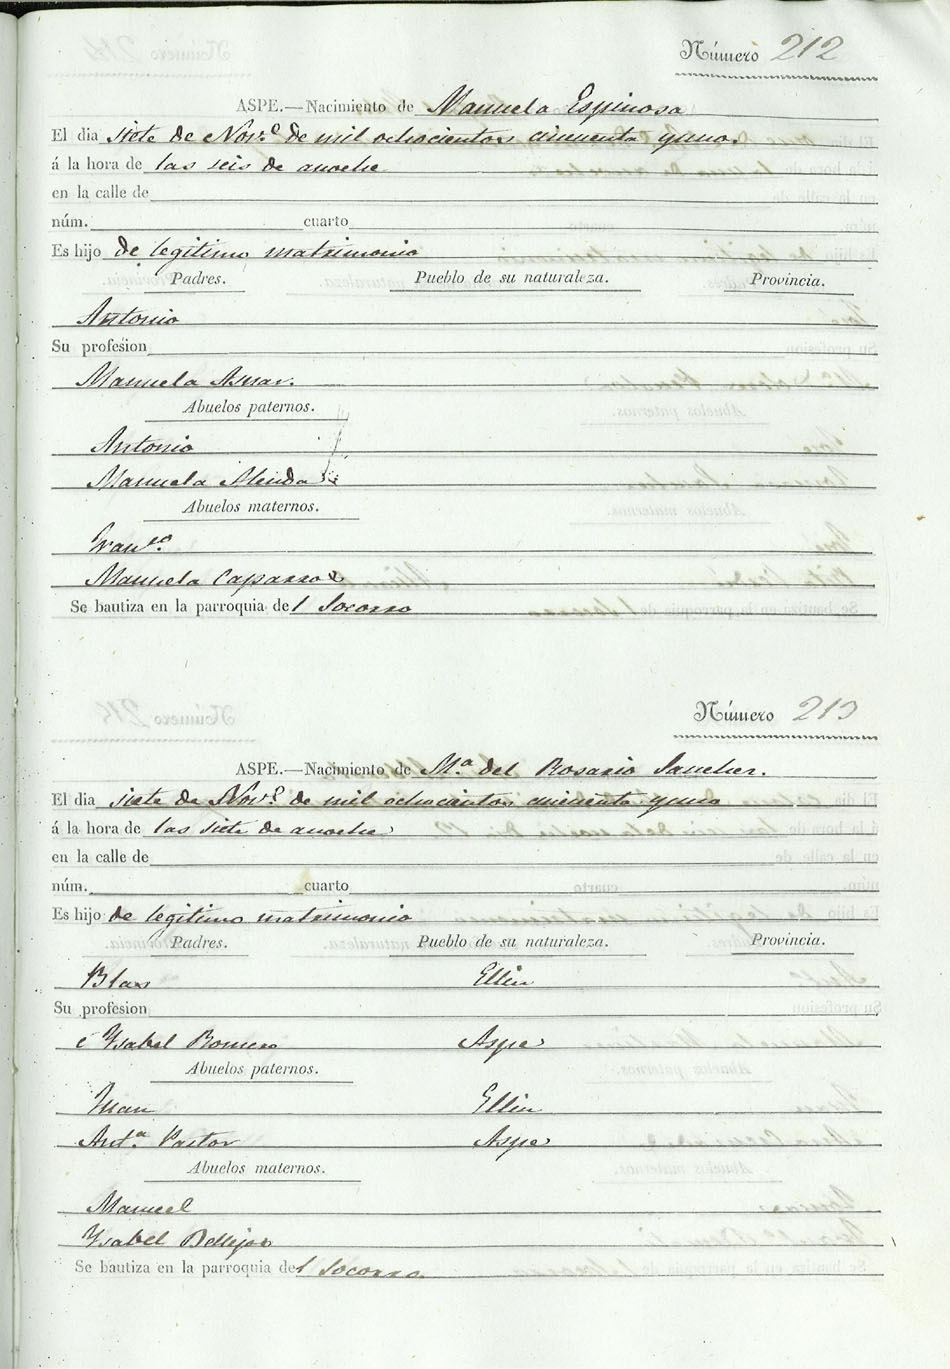 Número 212
ASPE.—Nacimiento de Manuela Espinosa
El dia siete de Nov.e de mil ochocientos cincuenta y uno.
á la hora de las seis de anoche
en la calle de
núm. cuarto
Es hijo de legitimo matrimonio
Padres. Pueblo de su naturaleza. Provincia.
Antonio
Su profesion
Manuela Asnar.
Abuelos paternos.
Antonio
Manuela Alenda
Abuelos maternos.
Fran.co
Manuela Caparros
Se bautiza en la parroquia del Socorro
Número 213
ASPE.—Nacimiento de M.a del Rosario Sanchez.
El dia siete de Nov.e de mil ochocientos cincuenta y uno
á la hora de las siete de anoche
en la calle de
núm. cuarto
Es hijo de legitimo matrimonio
Padres. Pueblo de su naturaleza. Provincia.
Blas Ellin
Su profesion
é Ysabel Romero Aspe
Abuelos paternos.
Juan Ellin
Ant.a Pastor Aspe
Abuelos maternos.
Manuel
Ysabel Bellejos
Se bautiza en la parroquia del Socorro.